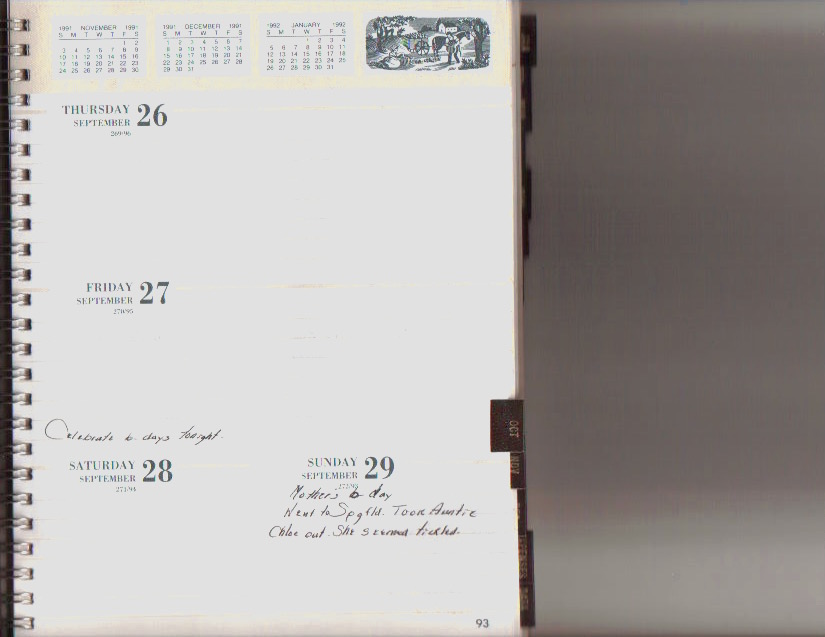 1991 NOVEMBER 1991
S M T W T F S
1 2
3 4 5 6 7 8 9
10 11 12 13 14 15 16
17 18 19 20 21 22 23
24 25 26 27 28 29 30
1991 DECEMBER 1991
S M T W T F S
1 2 3 4 5 6 7
8 9 10 11 12 13 14
15 16 17 18 19 20 21
22 23 24 25 26 27 28
29 30 31
1992 JANUARY 1992
S M T W T F S
1 2 3 4
5 6 7 8 9 10 11
12 13 14 15 16 17 18
19 20 21 22 23 24 25
26 27 28 29 30 31
THURSDAY 26
SEPTEMBER
269/96
FRIDAY 27
SEPTEMBER
270/95
Celebrate b. days tonight.
SATURDAY 28
SEPTEMBER
271/94
SUNDAY 29
SEPTEMBER
272/93
Mother's b day
Went to Spgfld. Took Auntie
Chloe out. She seemed tickled.
OCT
NOV
93